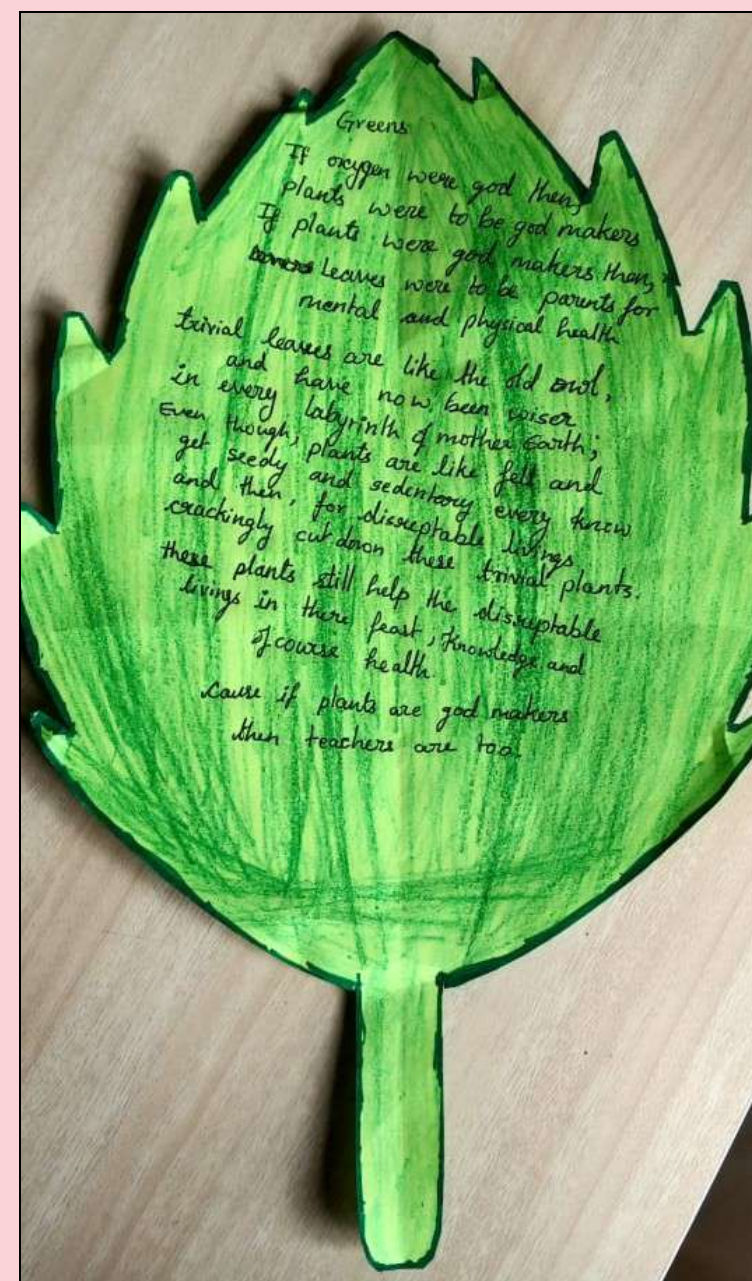 Greens
If oxygen were god then,
plants were to be god makers
If plants were god makers than,
Leaves were to be parents for
mental and physical health
trivial leaves are like the old owl,
and have now been wiser
in every labyrinth of mother Earth;
Even though, plants are like fell and
get seedy and sedentary every know
and then, for disreptable livings
crackingly cut down these trivial plants.
these plants still help the disreptable
livings in there feast, knowledge and
of course health.
cause if plants are god makers
then teachers are too.